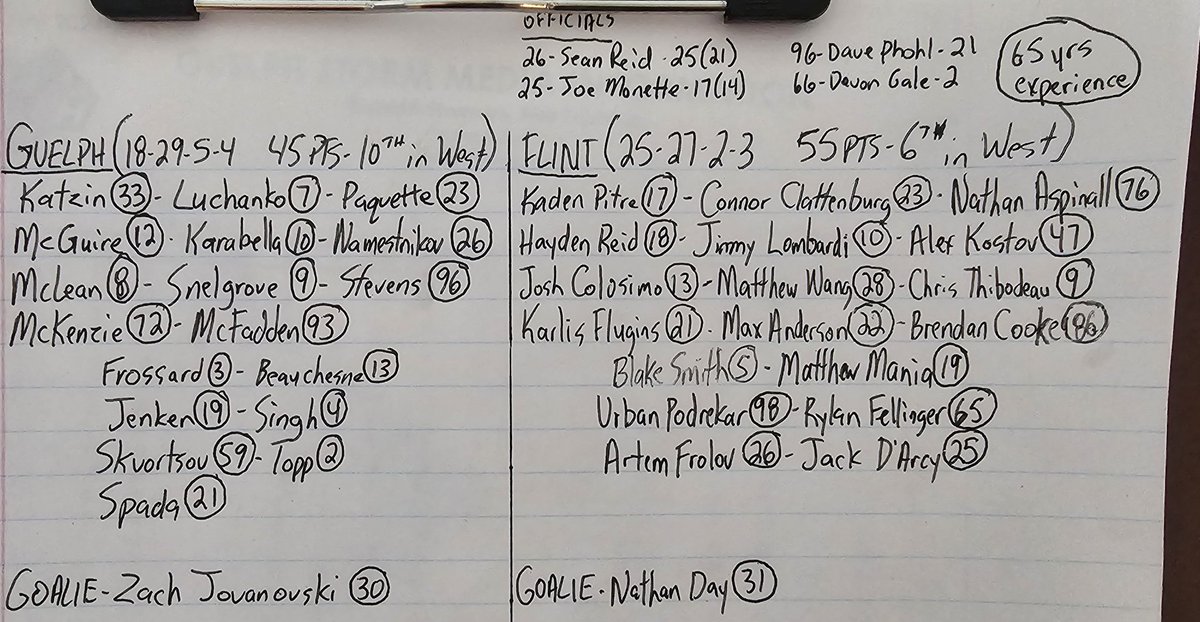 OFFICIALS
26-Sean Reid-25(21)
96-Dave Phohl-21
25-Joe Monette-17(14)
66-Devon Gale-2
65 yrs
experience
GUELPH (18-29-5-4 45 PTS-10TH in West)
Katzin 33 - Luchanko 7 - Paquette 23
McGuire 12 - Karabella 10 - Namestnikov 26
McLean 8 - Snelgrove 9 - Stevens 96
McKenzie 72 - McFadden 93
Frossard 3 - Beauchesne 13
Jenken 19 - Singh 4
Skvortsov 59 - Topp 2
Spada 21
GOALIE-Zach Jovanovski 30
FLINT (25-27-2-3 55 PTS-6TH in West)
Kaden Pitre 17 - Connor Clattenburg 23 - Nathan Aspinall 76
Hayden Reid 18 - Jimmy Lombardi 10 - Alex Kostov 47
Josh Colosimo 13 - Matthew Wang 28 - Chris Thibodeau 9
Karlis Flugins 21 - Max Anderson 22 - Brendan Cooke 96
Blake Smith 5 - Matthew Mania 19
Urban Podrekar 98 - Rylan Fellinger 65
Artem Frolov 26 - Jack D'Arcy 25
GOALIE-Nathan Day 31